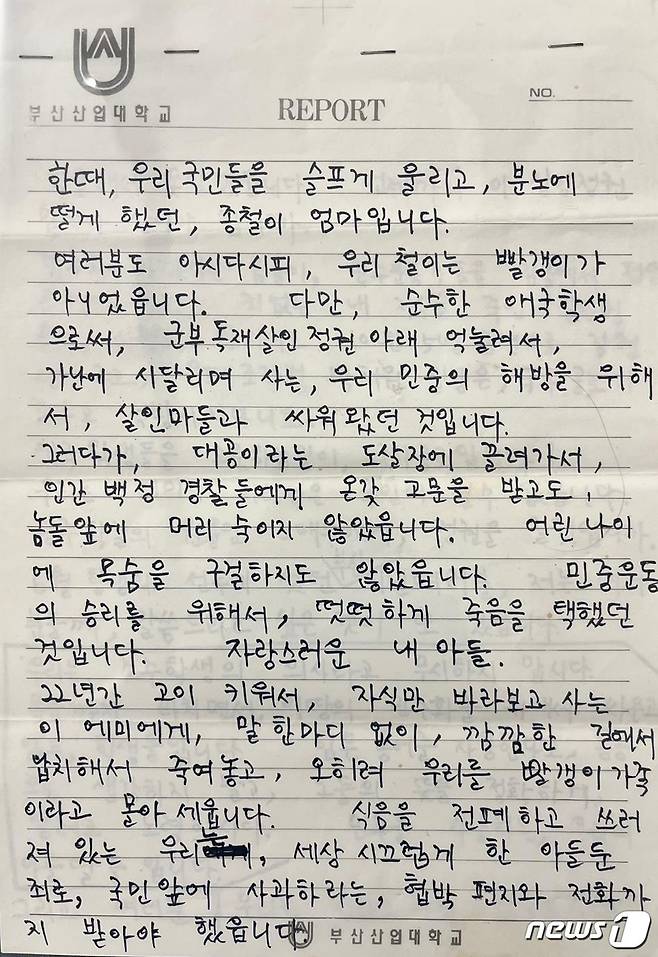 부산산업대학교
REPORT
NO.
한때, 우리 국민들을 슬프게 울리고, 분노에
떨게 했던, 종철이 엄마입니다.
여러분도 아시다시피, 우리 철이는 빨갱이가
아니었읍니다. 다만, 순수한 애국학생
으로써, 군부독재살인정권 아래 억눌려서,
가난에 시달리며 사는, 우리 민중의 해방을 위해
서, 살인마들과 싸워 왔던 것입니다.
그러다가, 대공이라는 도살장에 끌려가서,
인간 백정 경찰들에게 온갖 고문을 받고도,
놈들앞에 머리 숙이지 않았읍니다. 어린 나이
에 목숨을 구걸하지도 않았읍니다. 민중운동
의 승리를 위해서, 떳떳하게 죽음을 택했던
것입니다. 자랑스러운 내 아들.
22년간 고이 키워서, 자식만 바라보고 사는
이 에미에게, 말 한마디 없이, 깜깜한 길에서
납치해서 죽여놓고, 오히려 우리를 빨갱이가족
이라고 몰아 세웁니다. 식음을 전폐하고 쓰러
져 있는 우리, 세상 시끄럽게 한 아들둔
죄로, 국민앞에 사과하라는, 협박 편지와 전화까
지 받아야 했읍니다.
부산산업대학교
news1